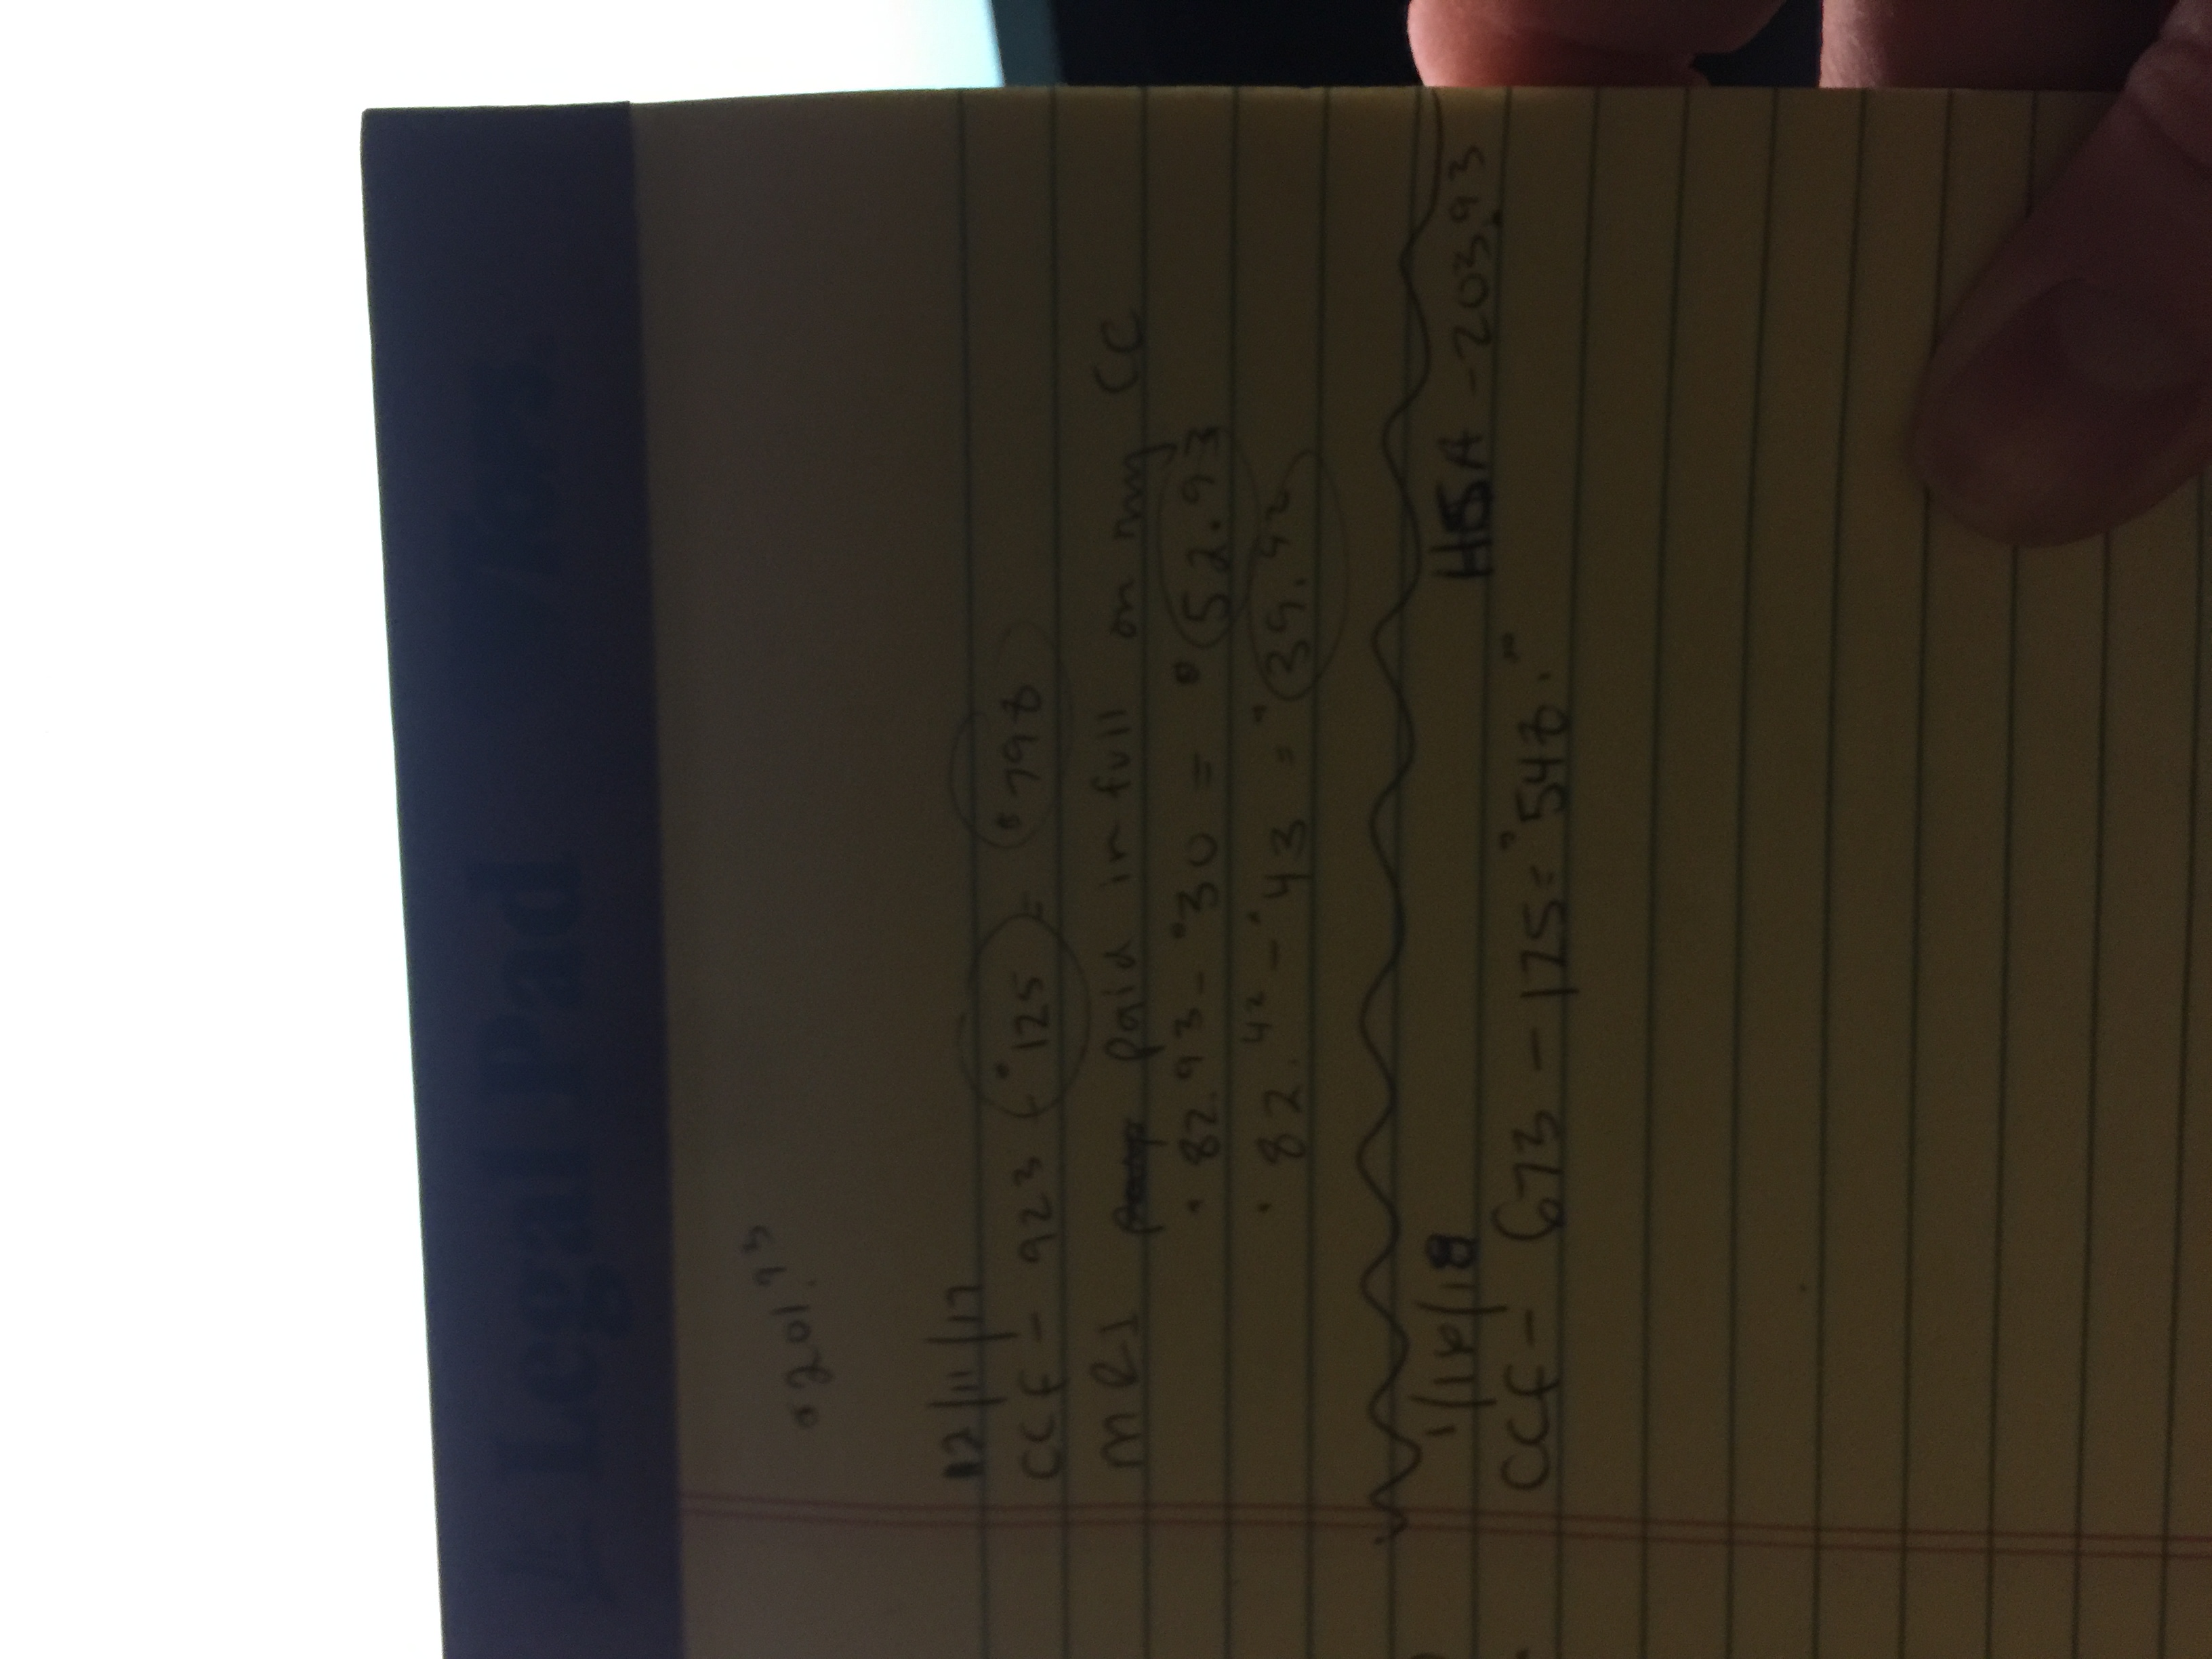 Legal Pad
$201.93
12/11/17
CCF - 923 - $125 = $798
MRI Paid in full on my CC
$82.93 - $30 = $52.93
$82.42 - $43 = $39.42
1/16/18 HSA - 203.93
CCF - 673 - 125 = $548.00